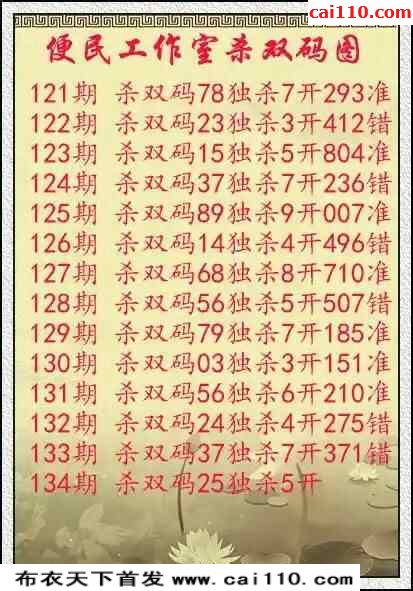 cai110.com
便民工作室杀双码图
121期 杀双码78独杀7开293准
122期 杀双码23独杀3开412错
123期 杀双码15独杀5开804准
124期 杀双码37独杀7开236错
125期 杀双码89独杀9开007准
126期 杀双码14独杀4开496错
127期 杀双码68独杀8开710准
128期 杀双码56独杀5开507错
129期 杀双码79独杀7开185准
130期 杀双码03独杀3开151准
131期 杀双码56独杀6开210准
132期 杀双码24独杀4开275错
133期 杀双码37独杀7开371错
134期 杀双码25独杀5开
布衣天下首发 www.cai110.com